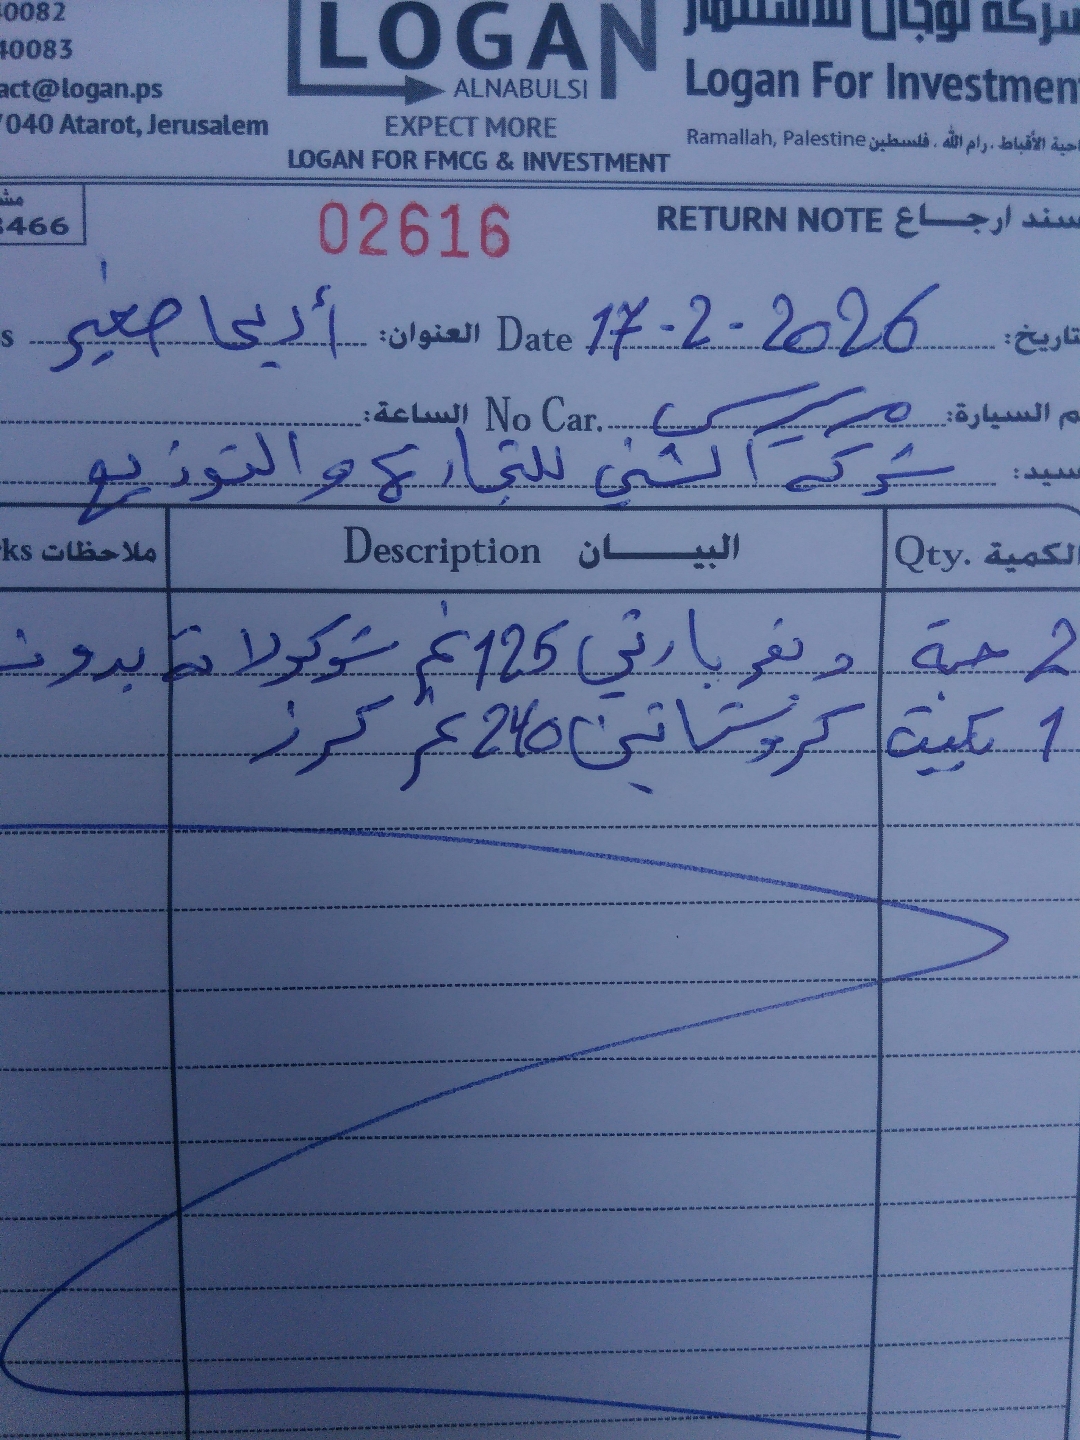 40082
40083
act@logan.ps
7040 Atarot, Jerusalem
LOGAN
ALNABULSI
EXPECT MORE
LOGAN FOR FMCG & INVESTMENT
شركة لوجان للاستثمار
Logan For Investmen
Ramallah, Palestine احية الأقباط . رام الله . فلسطين
مش
3466
02616
RETURN NOTE سند ارجاع
تاريخ: 17-2-2026 Date العنوان: أريحا s
م السيارة: مرسيدس No Car. الساعة:
سيد: شركة الشني للتجارة والتوزيع
الكمية Qty. البيان Description ملاحظات ks
2 حبة ويفر بارتي 125 غم شوكولاتة بدون
1 بكيت 240 غم كرز